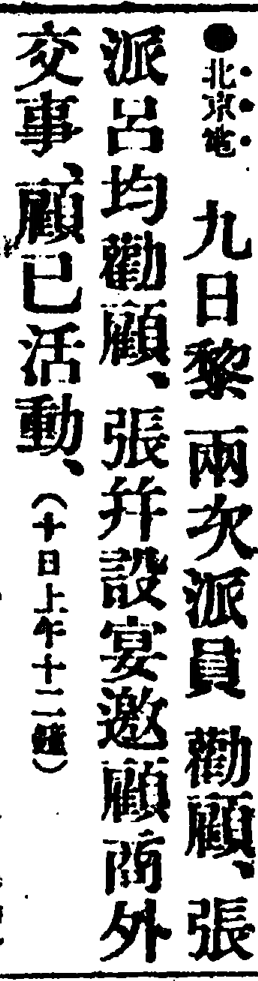 ●北京電　九日黎兩次派員勸顧、張
派呂均勸顧、張幷設宴邀顧商外
交事、顧已活動、（十日上午十二鐘）